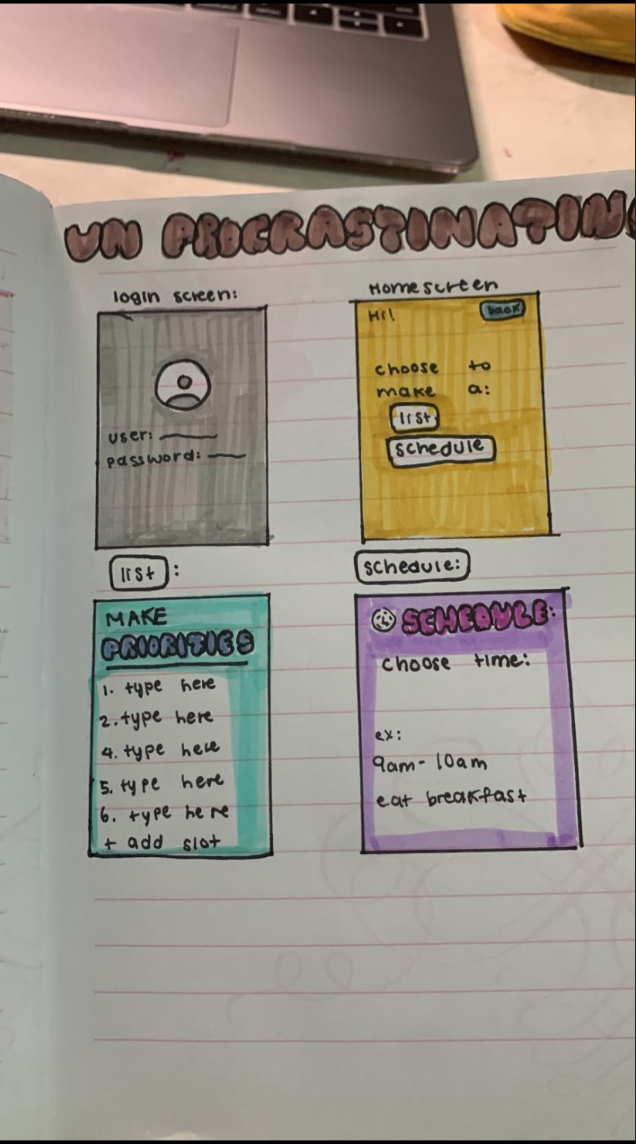 UN PROCRASTINATIN
login screen:
user:
password:
Homescreen
Hi!
back
choose to
make a:
list
schedule
list:
MAKE
PRIORITIES
1. type here
2. type here
4. type here
5. type here
6. type here
+ add slot
schedule:
SCHEDULE:
choose time:
ex:
9am-10am
eat breakfast